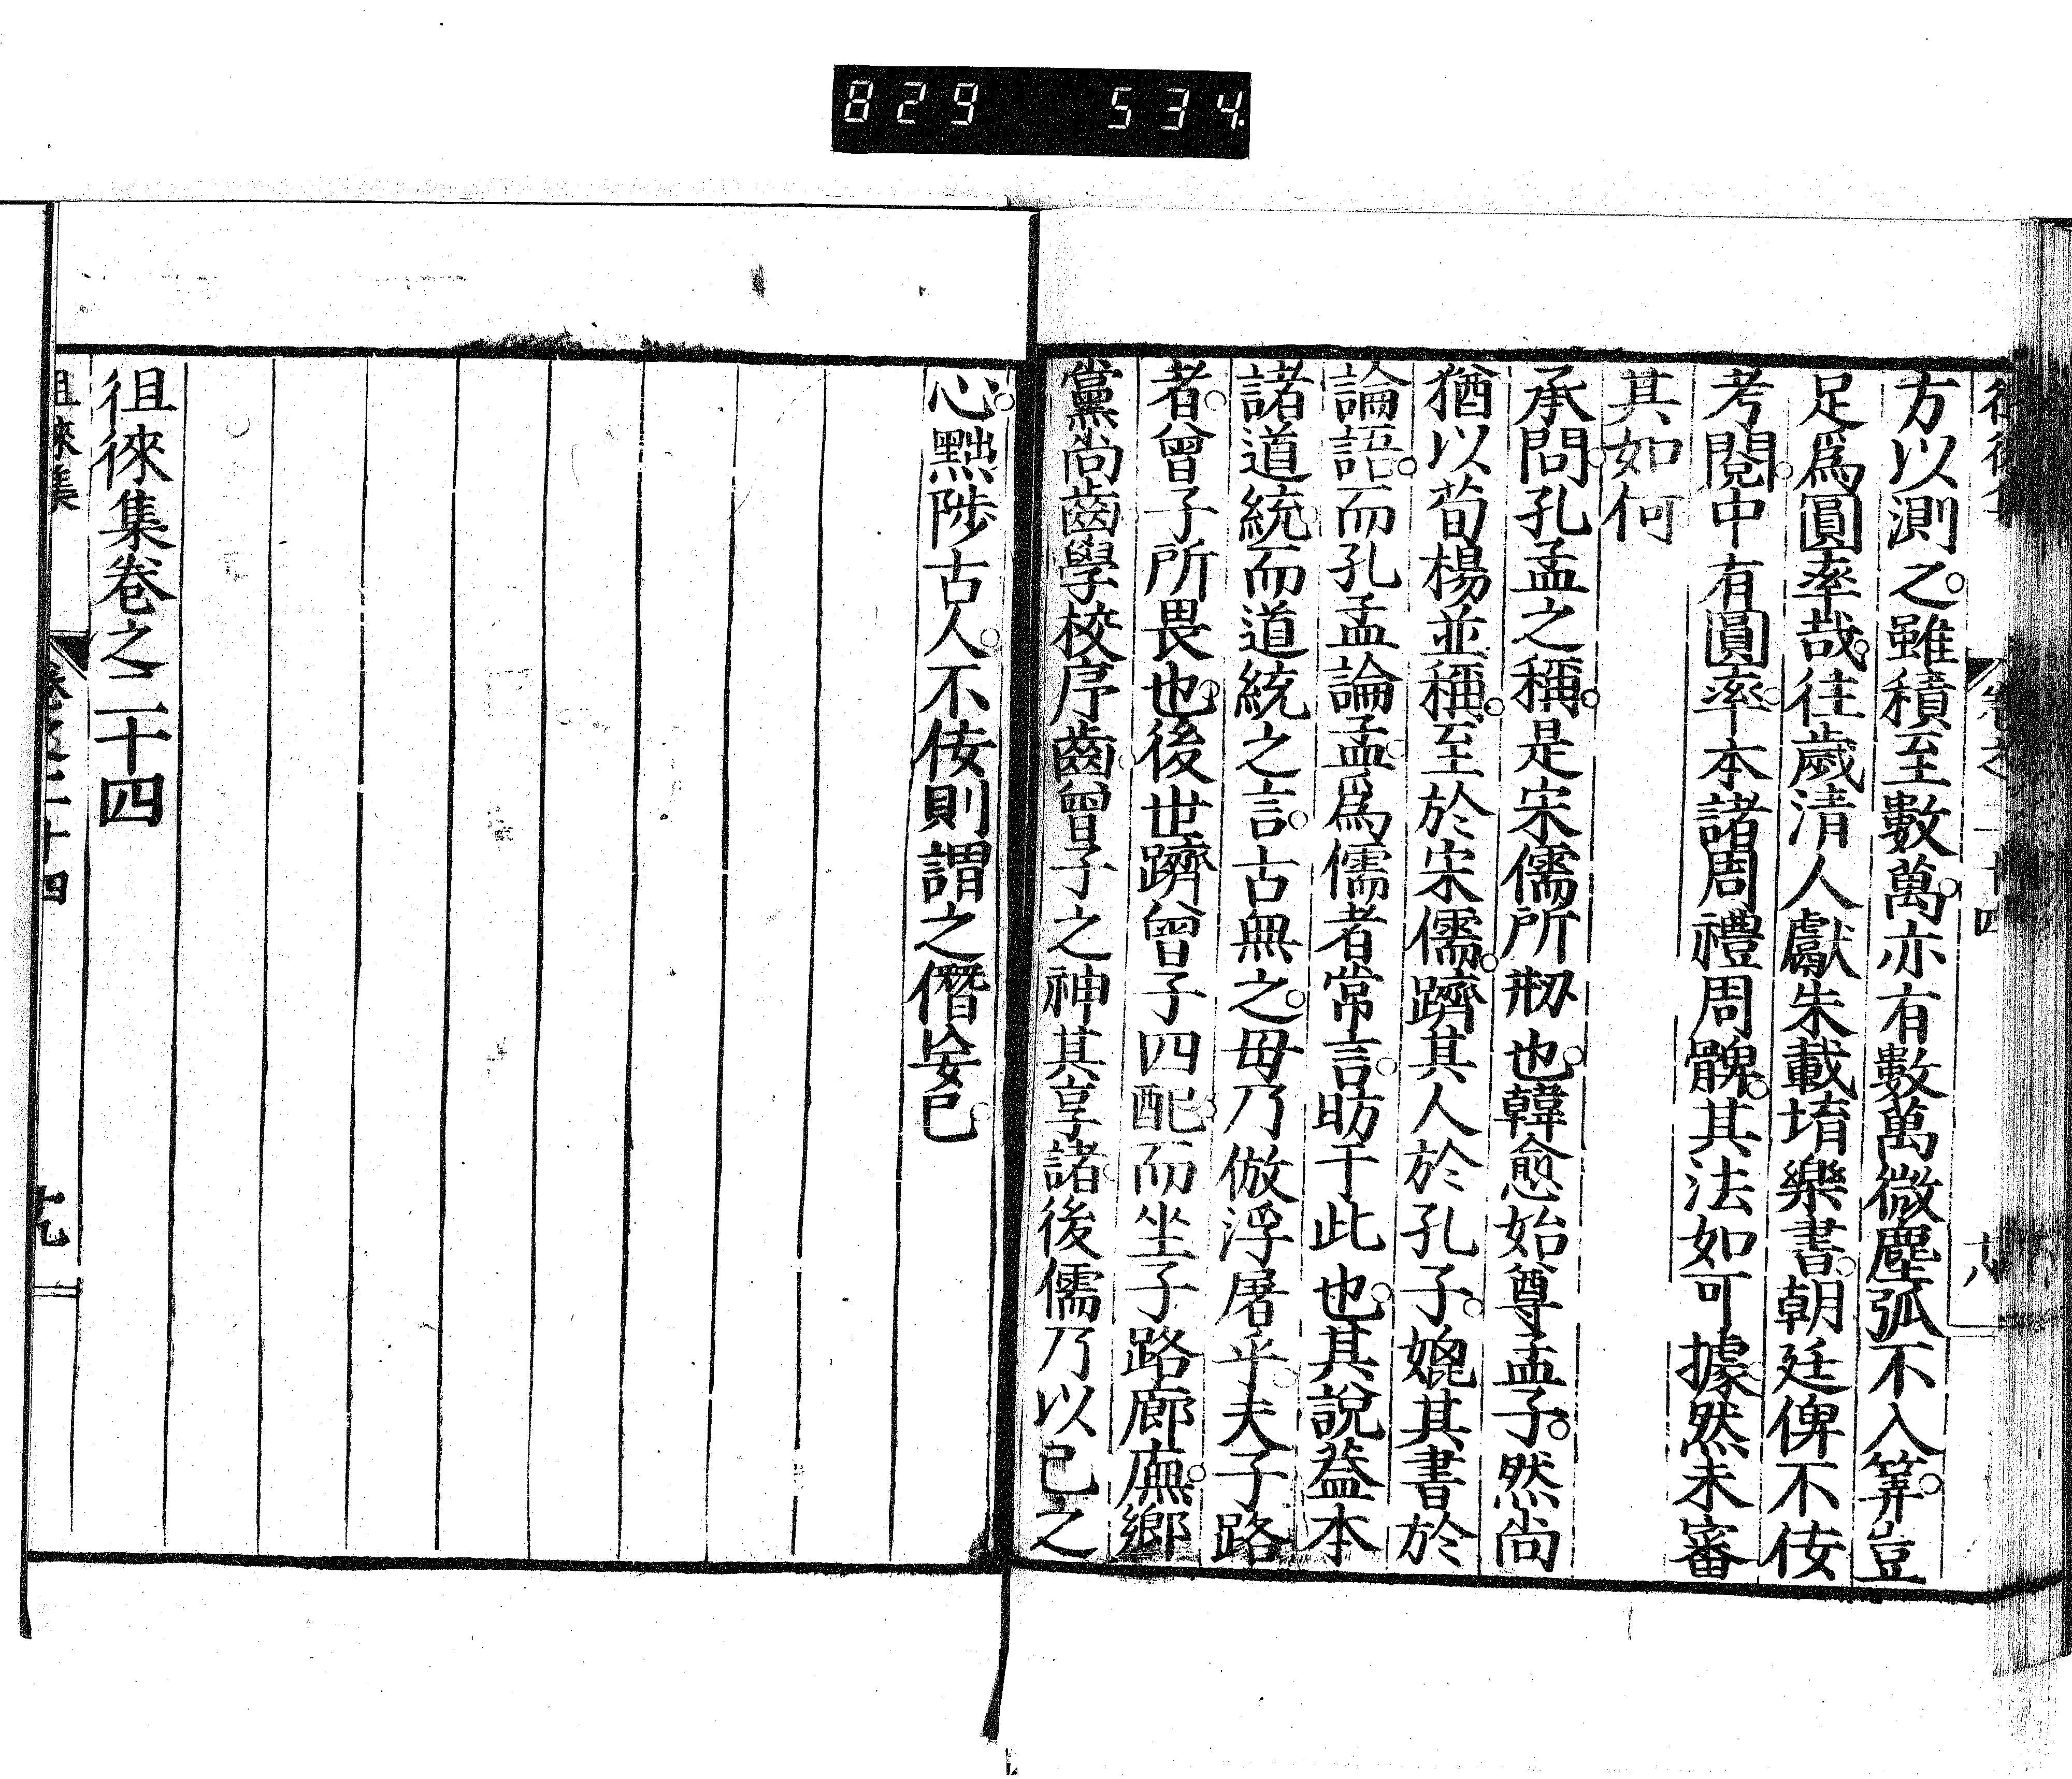 829 534
方以測之。雖積至數萬。亦有數萬微塵弧不入筭。豈
足爲圓率哉。往歲清人獻朱載堉樂書。朝廷俾不侫
考閱。中有圓率。本諸周禮周髀。其法如可據。然未審
其如何
承問。孔孟之稱。是宋儒所剏也。韓愈始尊孟子。然尚
猶以荀楊並稱。至於宋儒。躋其人於孔子。媲其書於
論語。而孔孟論孟。爲儒者常言。昉于此也。其說葢本
諸道統。而道統之言。古無之。毋乃倣浮屠乎。夫子路
者。曾子所畏也。後世躋曾子四配。而坐子路廊廡。鄉
黨尚齒。學校序齒。曾子之神其享諸。後儒乃以己之
心。黜陟古人。不侫則謂之僭妄已。
徂徠集卷之二十四
徂徠集
卷之二十四
十九
卷之二十四
十八